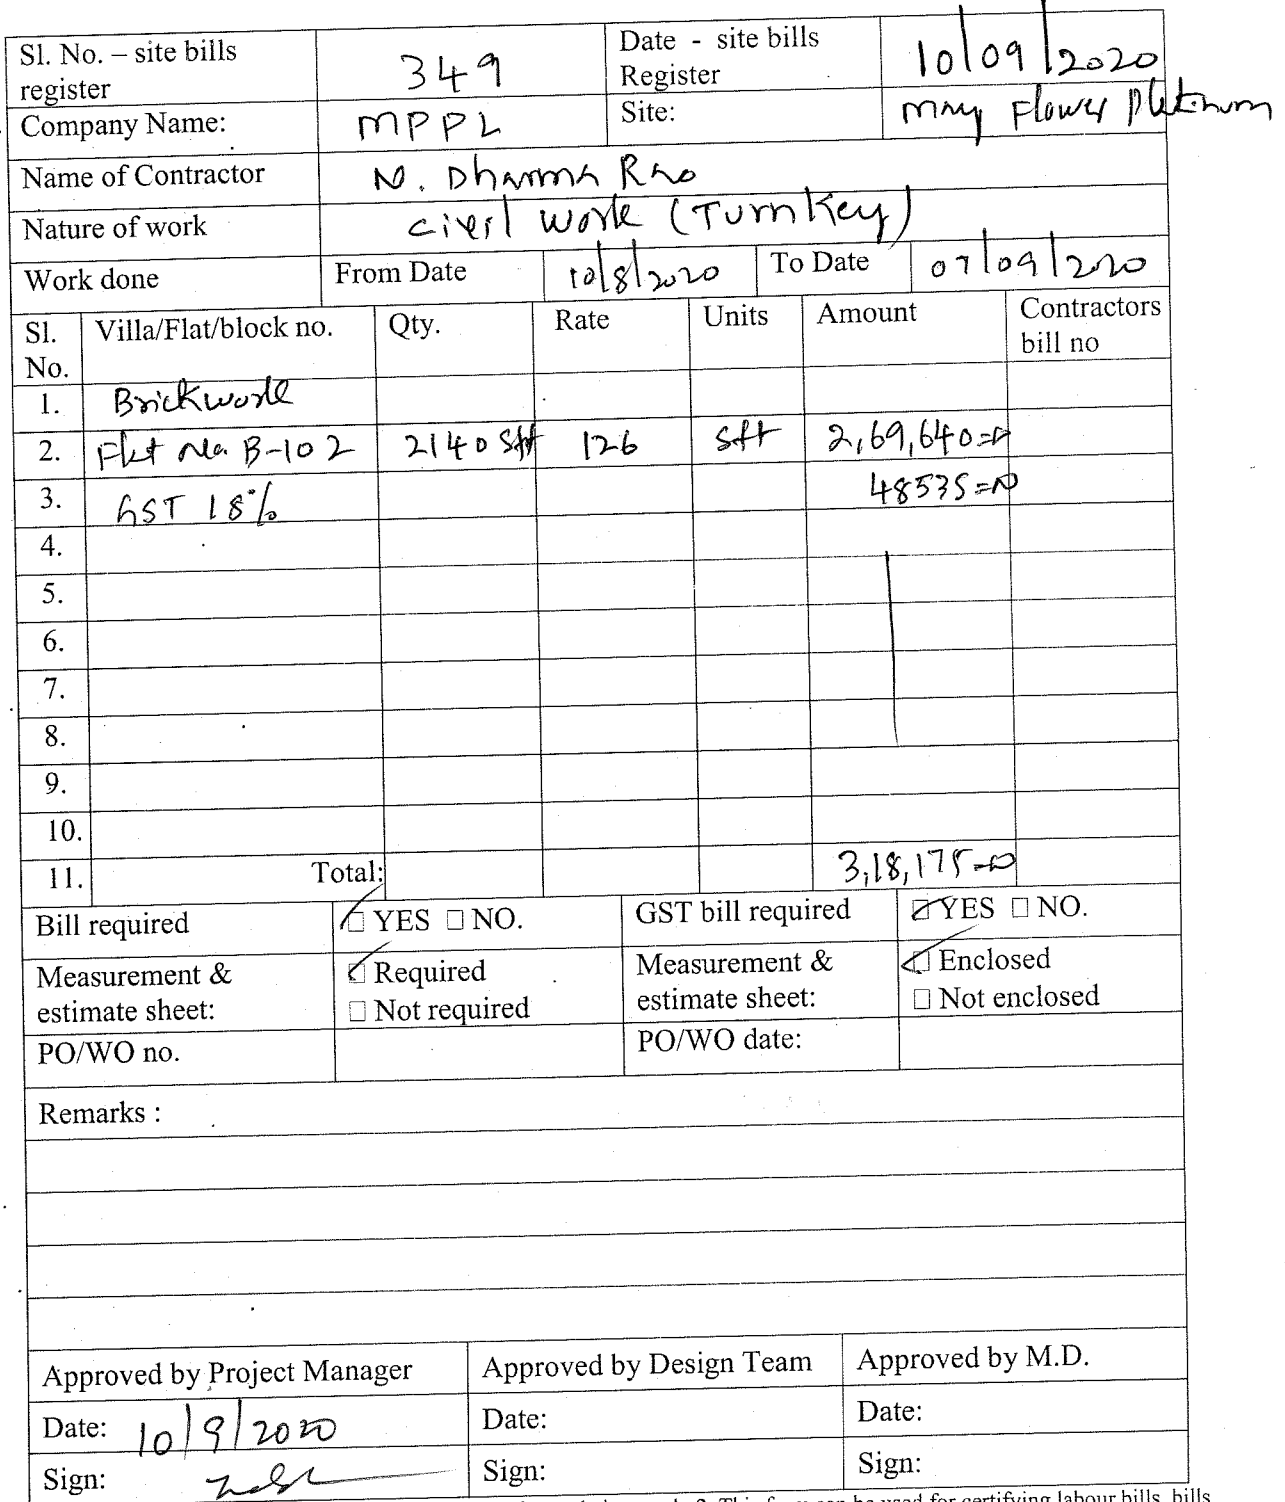 Sl. No. – site bills register 349 Date - site bills Register 10/09/2020
Company Name: MPPL Site: May Flower Platinum
Name of Contractor N. Dharma Rao
Nature of work Civil Work (Turnkey)
Work done From Date 10/8/2020 To Date 07/09/2020
Sl. No. Villa/Flat/block no. Qty. Rate Units Amount Contractors bill no
1. Brickwork
2. Flat No. B-102 2140 Sft 126 Sft 2,69,640=00
3. GST 18% 48535=00
4.
5.
6.
7.
8.
9.
10.
11. Total: 3,18,175=00
Bill required ☑ YES ☐ NO. GST bill required ☑ YES ☐ NO.
Measurement & estimate sheet: ☑ Required ☐ Not required Measurement & estimate sheet: ☑ Enclosed ☐ Not enclosed
PO/WO no. PO/WO date:
Remarks :
Approved by Project Manager Approved by Design Team Approved by M.D.
Date: 10/9/2020 Date: Date:
Sign: Sign: Sign:
2. This form can be used for certifying labour bills, bills